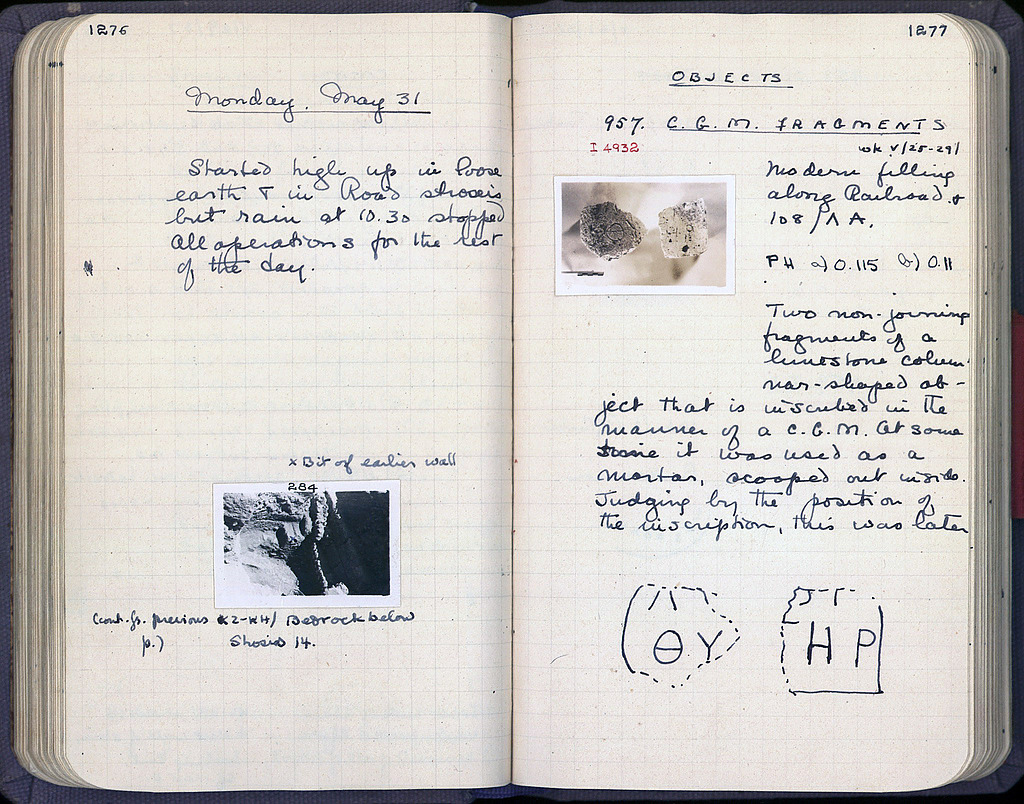 1276
Monday, May 31
Started high up in loose
earth & in Road strosis
but rain at 10.30 stopped
all operations for the rest
of the day.
x Bit of earlier wall
284
(cont. fr. previous K2-KH/ Bedrock below
p.) Strosis 14.
1277
OBJECTS
957. C. G. M. FRAGMENTS
I 4932
wk V/25-29/
Modern filling
along Railroad &
108/ΛA.
PH a) 0.115 b) 0.11
Two non-joining
fragments of a
limestone colum-
nar-shaped ob-
ject that is inscribed in the
manner of a C. G. M. At some
time it was used as a
mortar, scooped out inside.
Judging by the position of
the inscription, this was later
ΘΥ
ΗΡ